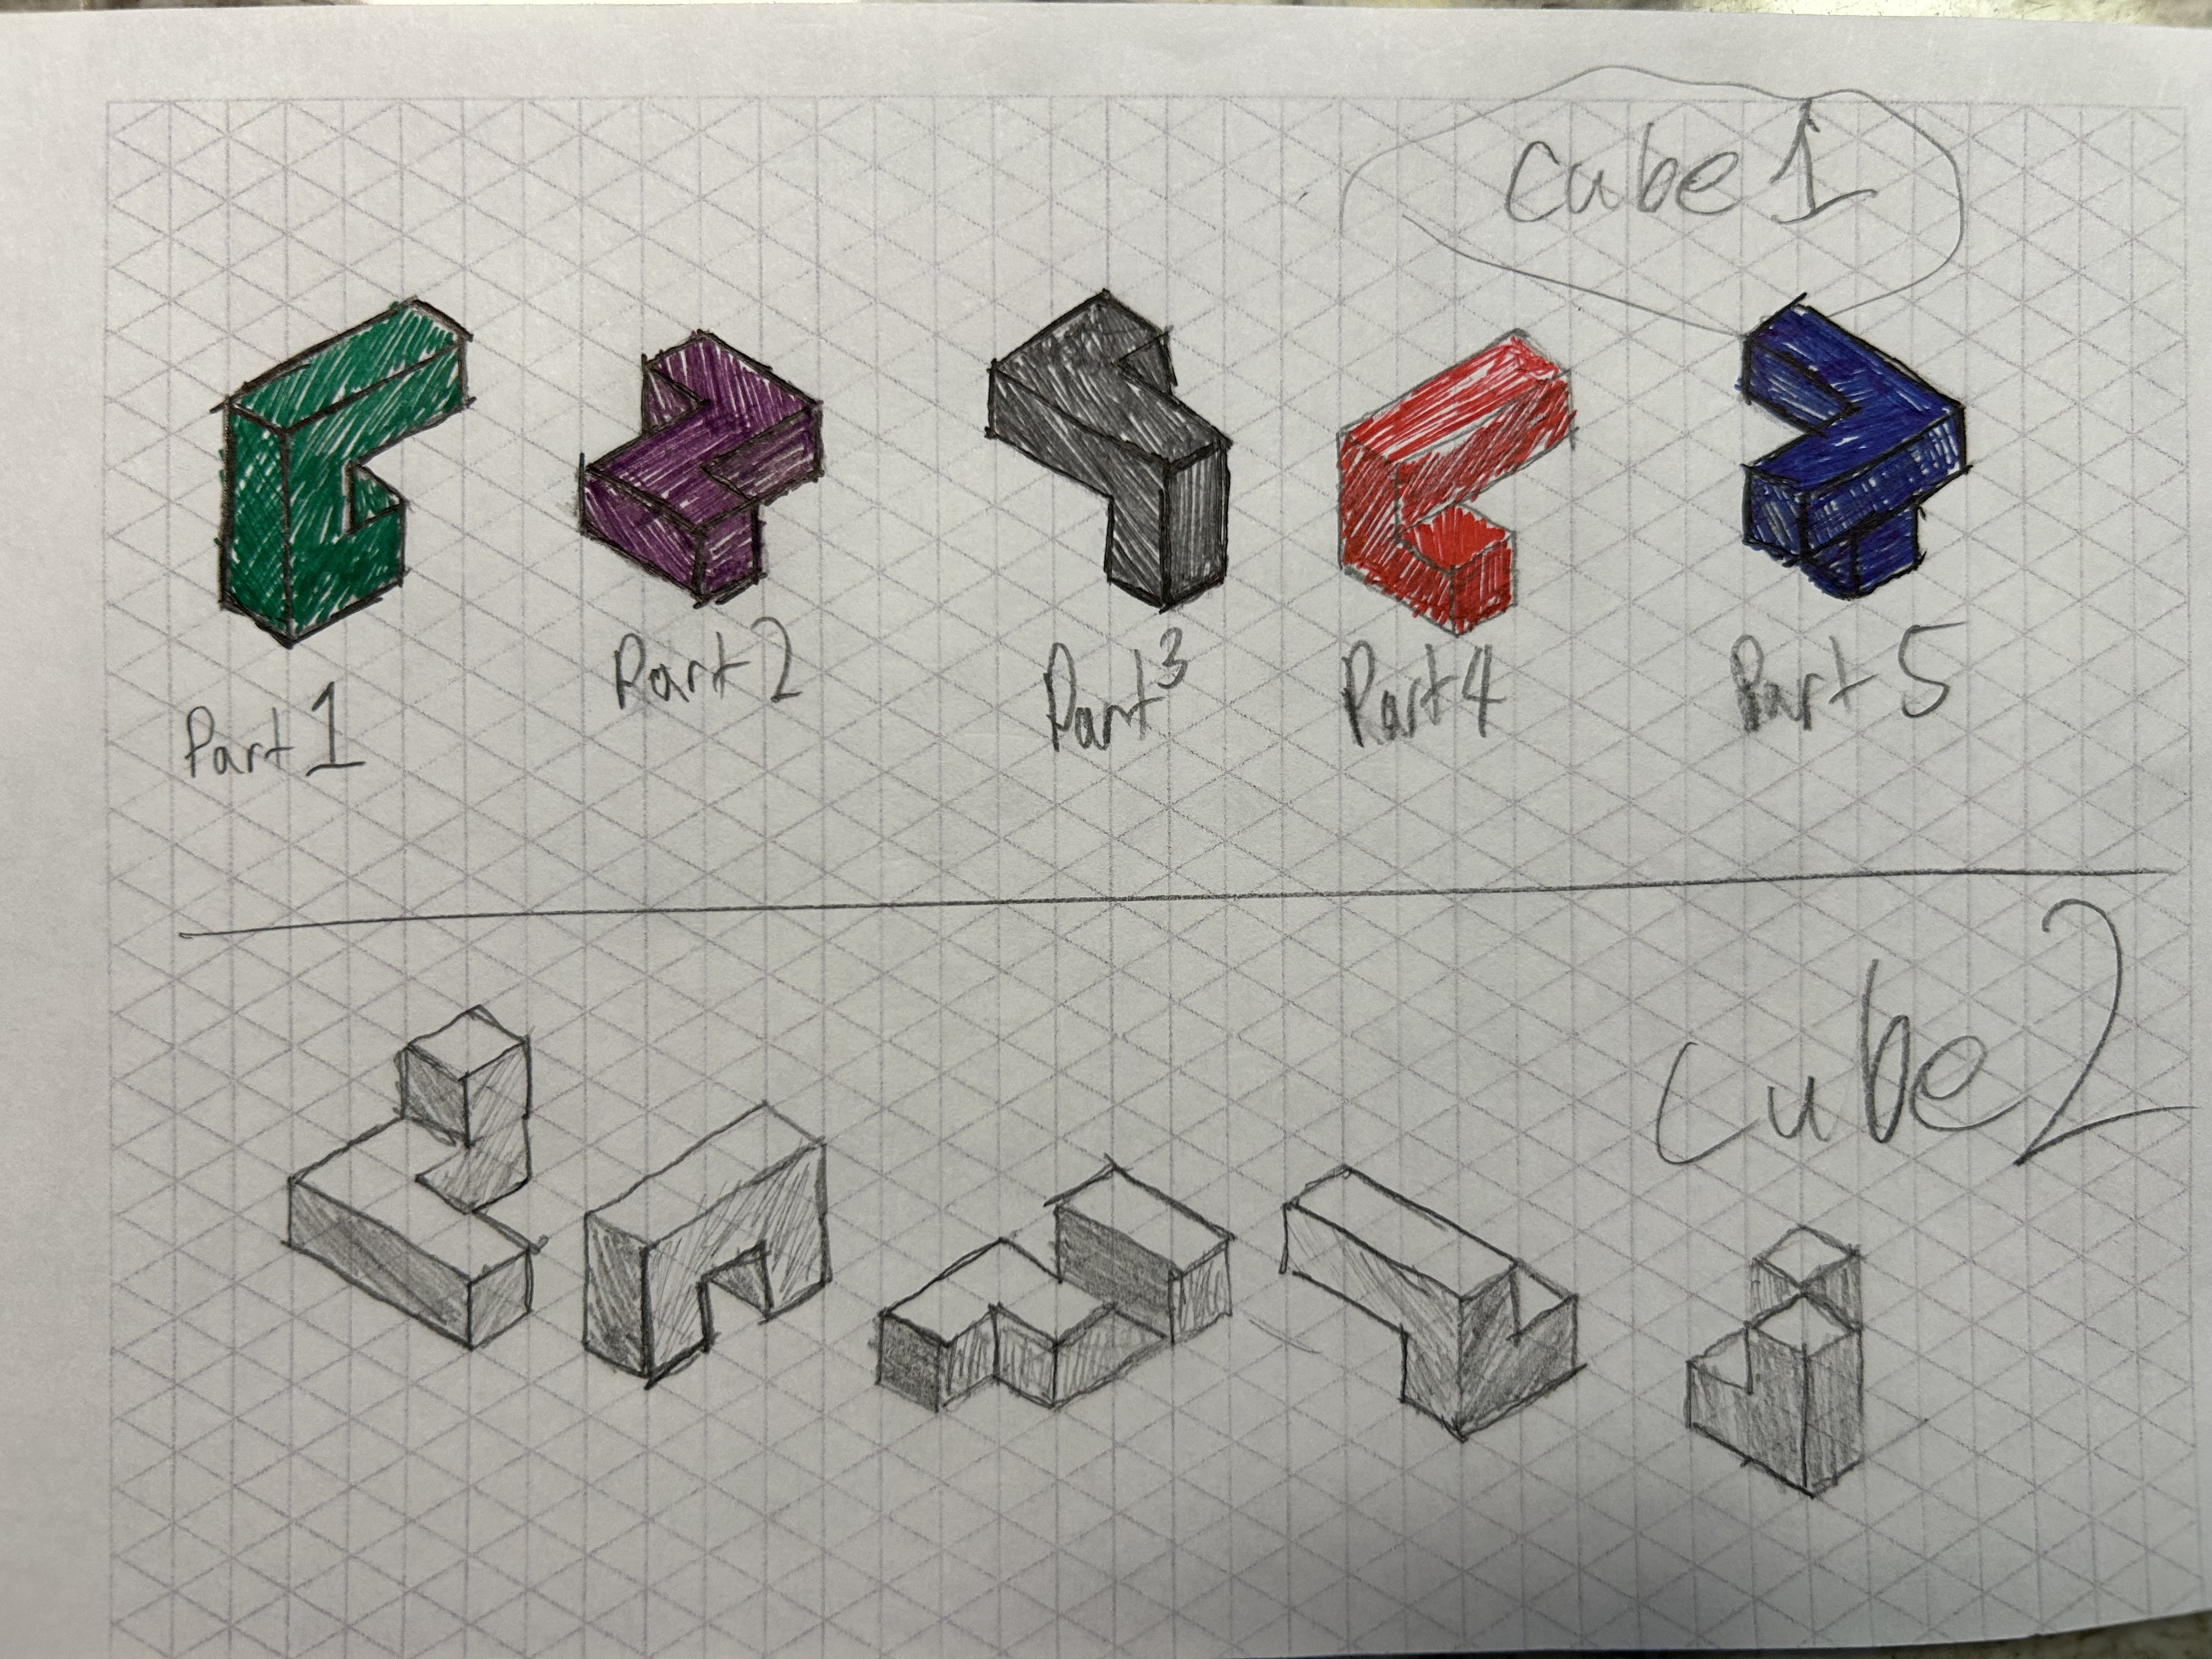 Cube 1
Part 1
Part 2
Part 3
Part 4
Part 5
Cube 2